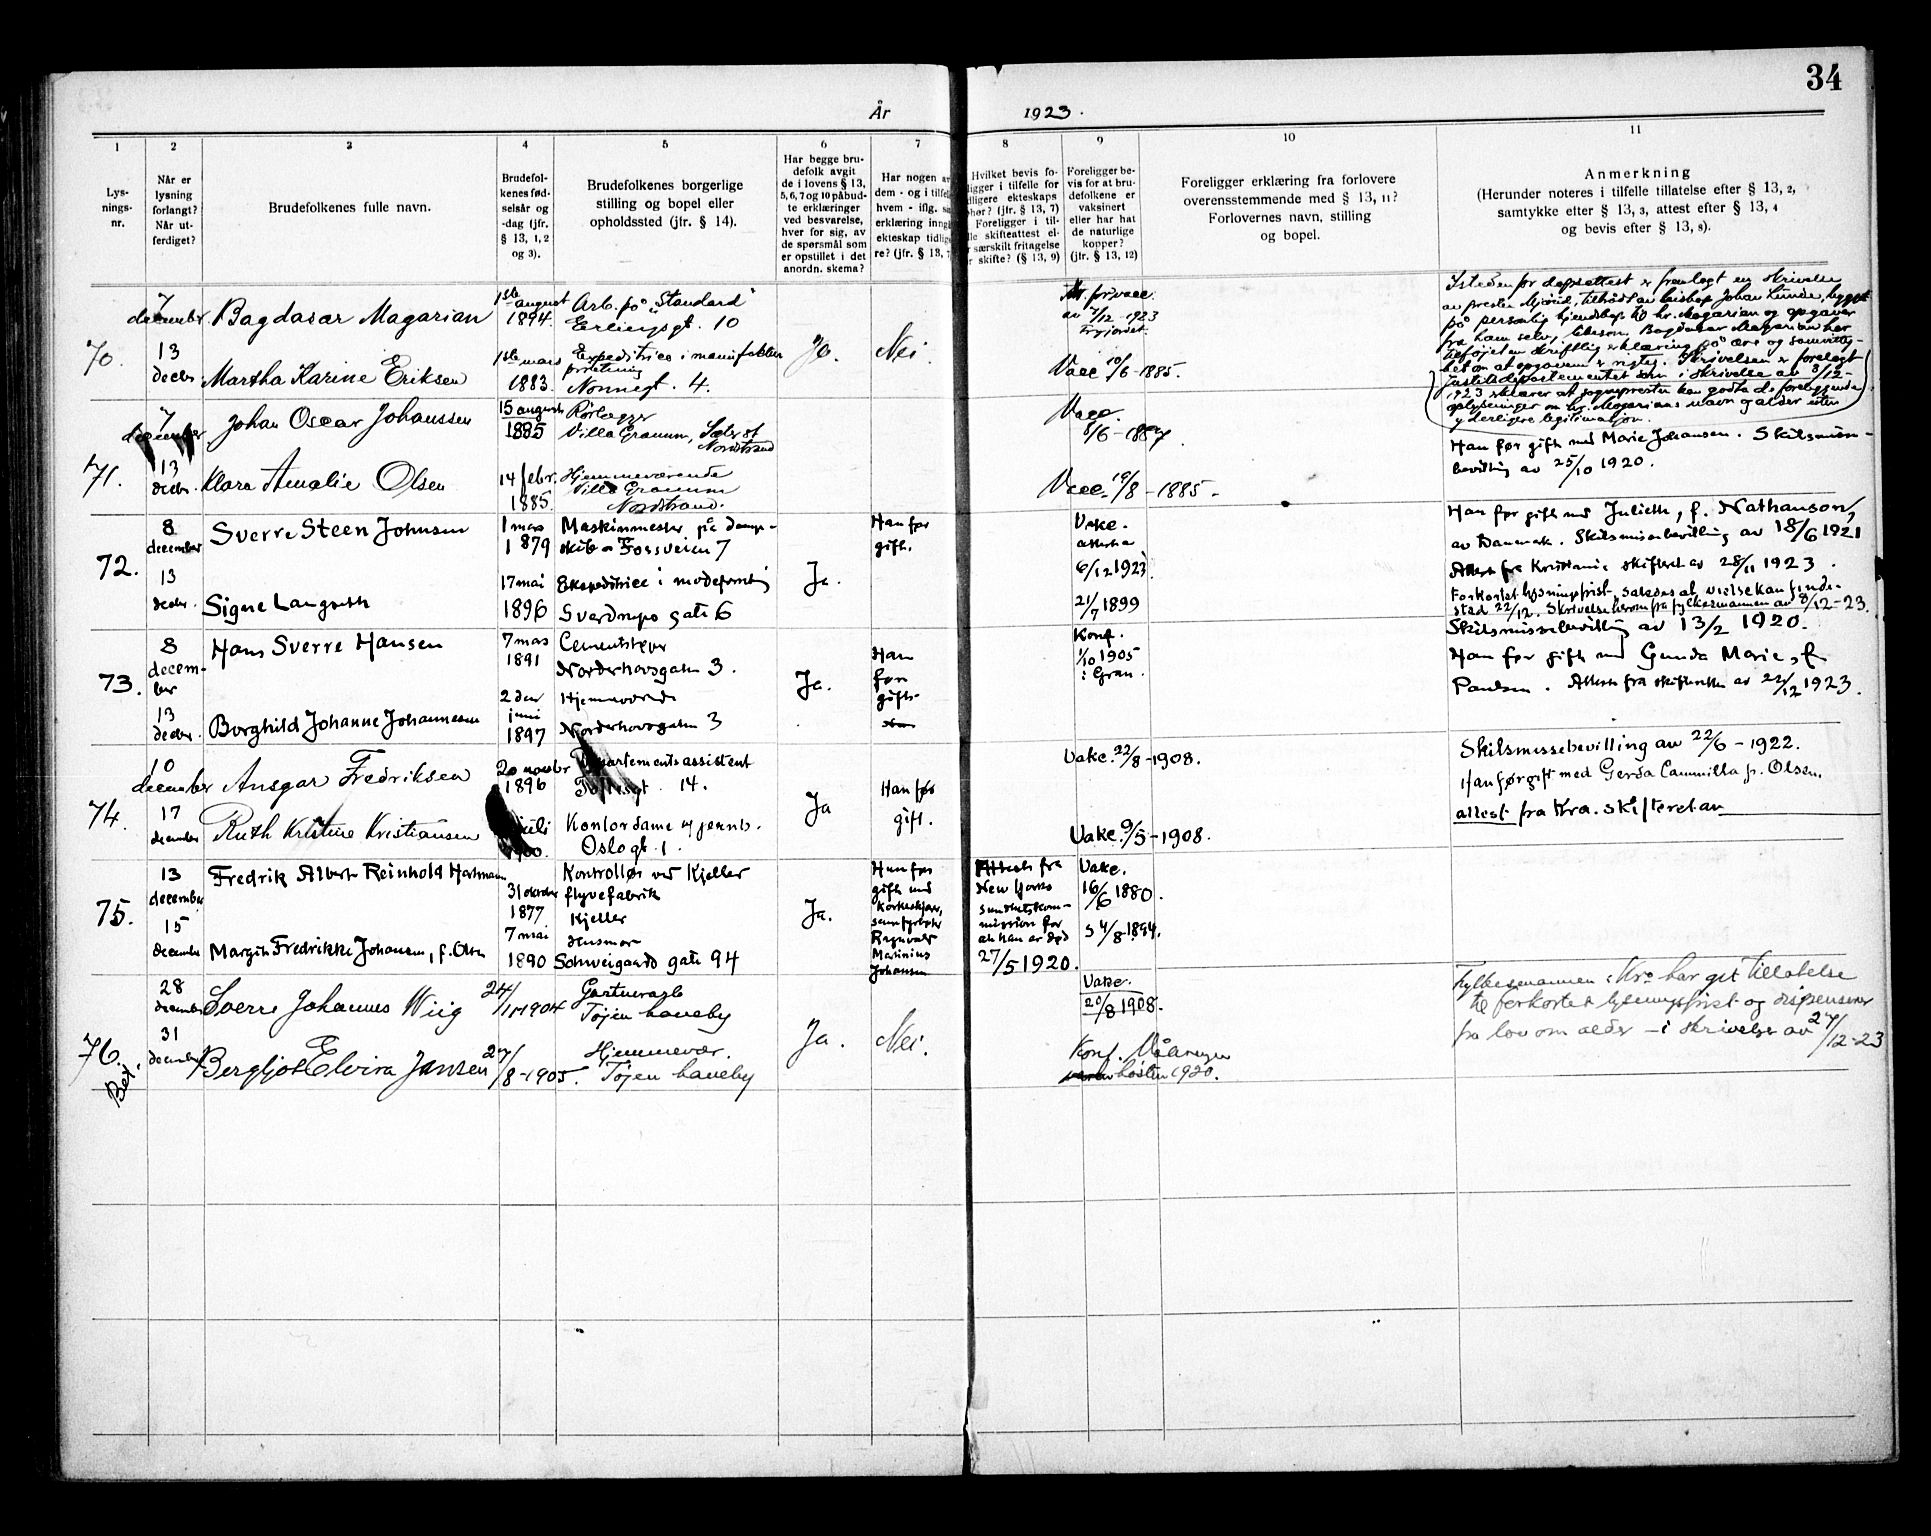 34
År 1923.
1 2 3 4 5 6 7 8 9 10 11
Lys-
nings-
nr.
Når er
lysning
forlangt?
Når ut-
ferdiget?
Brudefolkenes fulle navn.
Brudefol-
kenes fød-
selsår og
-dag (jfr.
§ 13, 1, 2
og 3).
Brudefolkenes borgerlige
stilling og bopel eller
opholdssted (jfr. § 14).
Har begge bru-
defolk avgit
de i lovens § 13,
5, 6, 7 og 10 påbud-
te erklæringer
ved besvarelse,
hver for sig, av
de spørsmål som
er opstillet i det
anordn. skema?
Har nogen av
dem - og i tilfelle
hvem - iflg.
erklæring inngåt
ekteskap tidlige-
re? (jfr. § 13,
Hvilket bevis fo-
ligger i tilfelle for
dligere ekteskaps
phør? (jfr. § 13, 7)
Foreligger i til-
lle skifteattest el-
r særskilt fritagelse
r skifte? (§ 13, 9)
Foreligger be-
vis for at bru-
defolkene er
vaksinert
eller har hat
de naturlige
kopper?
(jfr. § 13, 12)
Foreligger erklæring fra forlovere
overensstemmende med § 13, 11?
Forlovernes navn, stilling
og bopel.
Anmerkning
(Herunder noteres i tilfelle tillatelse efter § 13, 2,
samtykke efter § 13, 3, attest efter § 13, 4
og bevis efter § 13, 8).
70.
7
december
13
decbr.
Bagdasar Magarian
Martha Karine Eriksen
1ste august
1894.
1ste mars
1883.
Arb. på "Standard"
Erlingsgt. 10
Expeditrice i manufaktur
forretning
Nonnegt. 4.
Ja.
Nei.
7/12-1923
Vacc 10/6-1885.
Istedenfor dåpsattest er fremlagt en skrivelse
av presten
på personlig kjendskap til hr. Magarian og opgaver
fra ham selv. Bagdasar Magarian har
skriftlig erklæring på ære og samvittig-
het om at opgavene er rigtig. Skrivelsen er forelagt
Justitsdepartementet som i skrivelse av 8/12-
1923 erklærer at sognepresten kan godta de foreliggende
oplysninger om hr. Magarians navn og alder uten
yderligere legitimasjon.
71.
7
december
13
decbr.
Johan Oscar Johanssen
Klara Amalie Olsen
15 august
1885
14 febr.
1885.
Rørlegger
Villa Granum, Sæter st
Nordstrand
Hjemmeværende
Villa Granum
Nordstrand.
Vacc.
8/6-1887.
Vacc. 19/8-1885.
Han før gift med Marie Johansen. Skilsmisse-
bevilling av 25/10 1920.
72.
8
december
13
decbr.
Sverre Steen Johnsen
Signe Langseth
1 mars
1879
17 mai
1896
Maskinmester på damp-
skib - Fossveien 7
Ekspeditrice i modeforretning
Sverdrups gate 6
Ja.
Han før
gift.
Vakc.
attest
6/12 1923.
21/7 1899
Han før gift med Juliette, f. Nathanson,
av Danmark. Skilsmissebevilling av 18/6 1921
Attest fra Kristiania skifteret av 28/11 1923.
Forkortet lysningsfrist, saaledes at vielse kan finde
sted 22/12. Skrivelse herom fra fylkesmannen av 8/12-23.
73.
8
decem-
ber
13
decbr.
Hans Sverre Hansen
Borghild Johanne Johannesen
7 mars
1891
2den
juni
1897
Cementstøper
Norderhovsgaten 3.
Hjemmeværende
Norderhovsgaten 3
Ja.
Han
før
gift.
Konf.
1/10 1905
i Gran.
Skilsmissebevilling av 13/2 1920.
Han før gift med Gunda Marie, f.
Paulsen. Attest fra skifteretten av 22/12 1923.
74.
10
december
17
december
Ansgar Fredriksen
Ruth Kristine Kristiansen
20 novbr
1896
juli
1900.
Departementsassistent
14.
Kontordame v/ jernb.
Oslogt. 1.
Ja
Han før
gift.
Vakc. 22/8-1908.
Vakc. 9/5-1908.
Skilsmissebevilling av 22/6-1922.
Han før gift med Gerda Cammilla f. Olsen.
attest fra Kra. skifteret av
75.
13
december
15
december
Fredrik Albert Reinhold Hartmann
Margith Fredrikke Johansen, f. Olsen
31 oktober
1877
7 mai
1890
Kontrollør ved Kjeller
flyvefabrik
Kjeller
Husmor
Schweigaards gate 94
Ja.
Hun før
gift med
Korkeskjær,
senere fyrbøter
Ragnvald
Martinius
Johansen
Attest fra
New Yorks
sundhetskom-
mission for
at han er død
27/5 1920.
Vakc.
16/6 1880.
4/8 1894.
76.
Bet.
28
december
31
december
Sverre Johannes Wiig
Bergljot Elvira Jensen
24/11 1904
27/8-1905.
Gartnerarb
Tøjen haveby
Hjemmevær.
Tøjen haveby
Ja.
Nei.
Vakc.
20/8 1908.
Konf. Vålerengen
høsten 1920.
Fylkesmannen i Kra har git tillatelse
til forkortet lysningsfrist og dispenserer
fra lov om alder - i skrivelse av 27/12-23